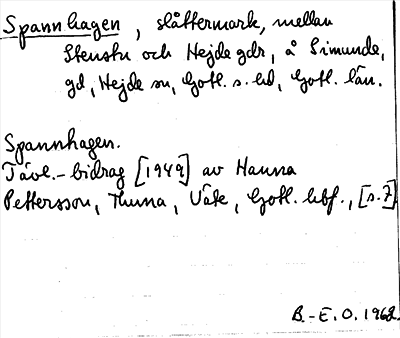 Spannhagen, slåttermark, mellan
Stenstu och Hejde gdr, å Simunde,
gd, Hejde sn, Gotl. s. hd, Gotl. län.
Spannhagen.
Tävl.-bidrag [1949] av Hanna
Pettersson, Thuna, Väte, Gotl. hbf., [s. 7]
B.-E. O. 1962.